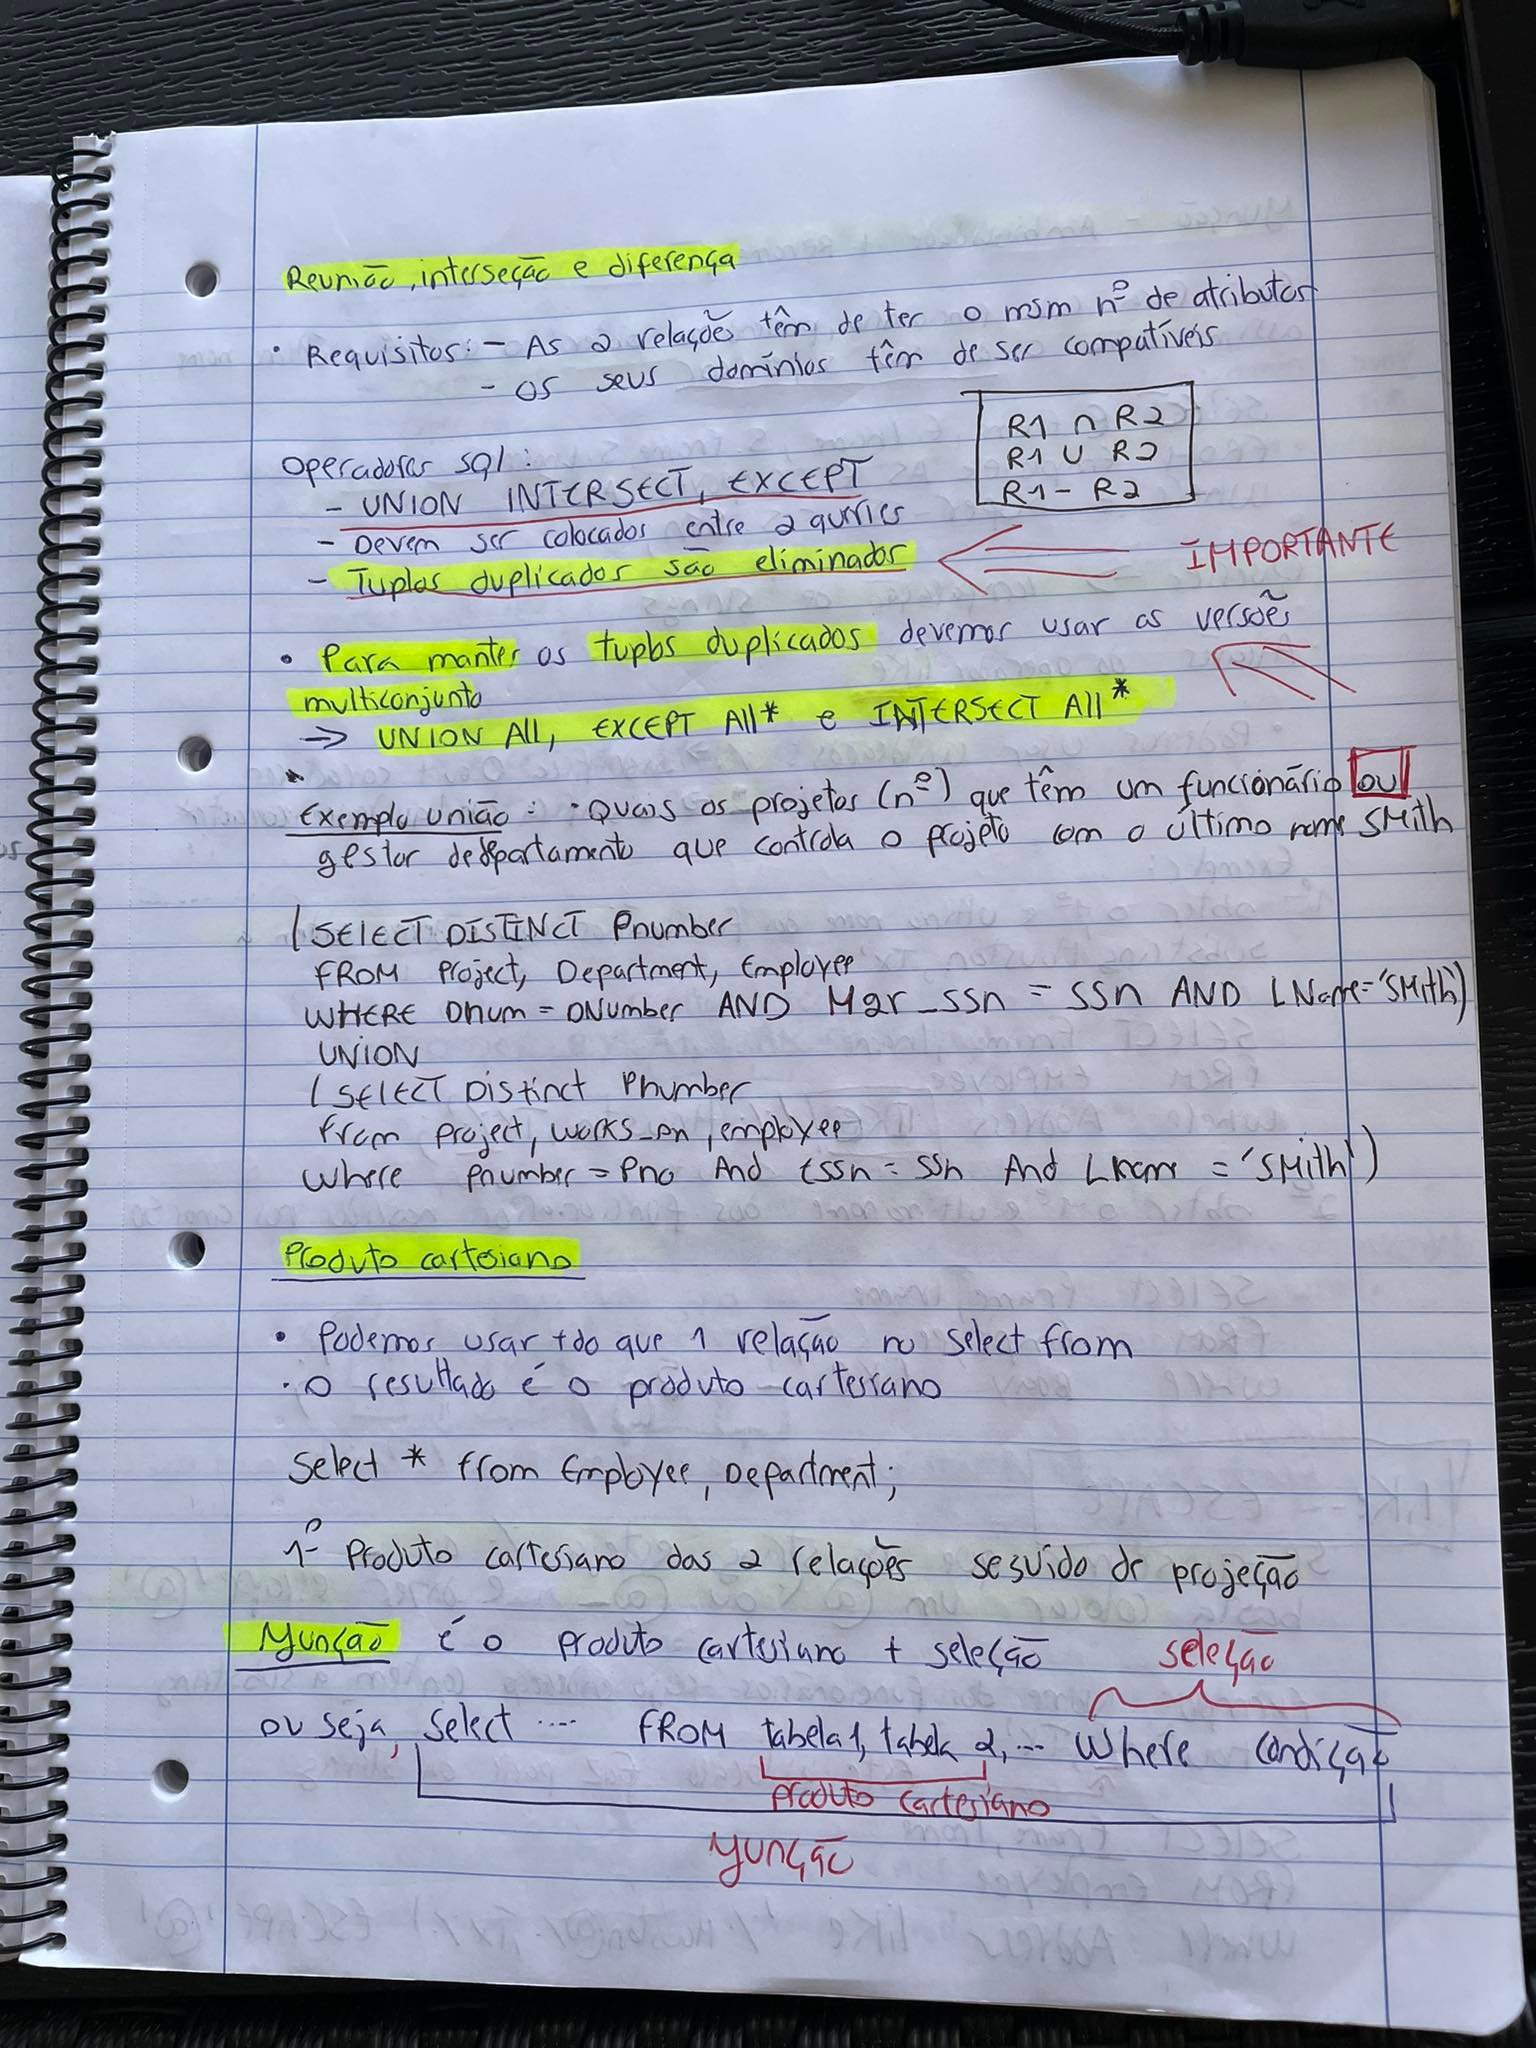 Reunião, interseção e diferença
• Requisitos: - As 2 relações têm de ter o msm nº de atributos
- Os seus domínios têm de ser compatíveis
R1 ∩ R2
R1 U R2
R1 - R2
Operadores SQl:
- UNION INTERSECT, EXCEPT
- Devem ser colocados entre 2 qurries
- Tuplos duplicados são eliminados
IMPORTANTE
• Para manter os tuplos duplicados devemos usar as versões
multiconjunto
→ UNION All, EXCEPT All* e INTERSECT All*
Exemplo união: · Quais os projetos (nº) que têm um funcionário ou
gestor de departamento que controla o projeto com o último nome SMith
(SElECT DISTINCT Pnumber
FROM Project, Department, Employee
WHERE Dnum = DNumber AND Mgr_ssn = SSn AND LName='SMith')
UNION
(SElECT Distinct Pnumber
From project, works_on, employee
Where pnumber = Pno And Essn = SSn And Lnam = 'SMith')
Produto cartesiano
• Podemos usar +do que 1 relação no select from
· O resultado é o produto cartesiano
Select * from Employee, Department;
1º Produto cartesiano das 2 relações seguido de projeção
Yunção é o produto cartesiano + seleção
seleção
ou seja, select .... FROM tabela1, tabela 2, ... Where condição
produto cartesiano
Yunção